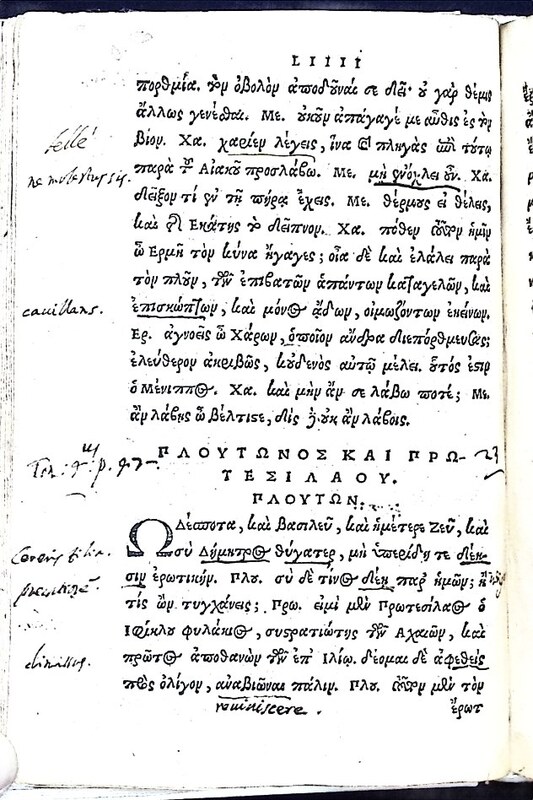 LIIII
πορθμία. τὸν ὀβολὸν ἀποδοῦναί σε δεῖ· οὐ γὰρ θέμις
ἄλλως γενέσθαι. Με. οὐκοῦν ἀπάγαγέ με αὖθις ἐς τὸν
βίον. Χα. χαρίεν λέγεις, ἵνα καὶ πληγὰς ἐπὶ τούτῳ
παρὰ τοῦ Αἰακοῦ προσλάβω. Με. μὴ ἐνόχλει οὖν. Χα.
δεῖξον τί ἐν τῇ πήρᾳ ἔχεις. Με. θέρμους εἰ θέλεις,
καὶ τῆς Ἑκάτης τὸ δεῖπνον. Χα. πόθεν τοῦτον ἡμῖν
ὦ Ἑρμῆ τὸν κύνα ἤγαγες; οἷα δὲ καὶ ἐλάλει παρὰ
τὸν πλοῦν, τῶν ἐπιβατῶν ἁπάντων καταγελῶν, καὶ
ἐπισκώπτων, καὶ μόνος ᾄδων, οἰμωζόντων ἐκείνων.
Ερ. ἀγνοεῖς ὦ Χάρων, ὁποῖον ἄνδρα διεπόρθμευσας;
ἐλεύθερον ἀκριβῶς, κοὐδενὸς αὐτῷ μέλει. οὗτός ἐστιν
ὁ Μένιππος. Χα. καὶ μὴν ἄν σε λάβω ποτέ; Με.
ἂν λάβῃς ὦ βέλτιστε, δὶς δὲ οὐκ ἂν λάβοις.
ΠΛΟΥΤΩΝΟΣ ΚΑΙ ΠΡΩ-
ΤΕΣΙΛΑΟΥ.
ΠΛΟΥΤΩΝ.
Ὦ Δέσποτα, καὶ Βασιλεῦ, καὶ ἡμέτερε Ζεῦ, καὶ
σὺ Δήμητρος θύγατερ, μὴ ὑπερίδητε δέη-
σιν ἐρωτικήν. Πλου. σὺ δὲ τίνος δέῃ παρ' ἡμῶν; ἢ
τίς ὢν τυγχάνεις; Πρω. εἰμὶ μὲν Πρωτεσίλαος ὁ
Ἰφίκλου φυλάκιος, συστρατιώτης τῶν Ἀχαιῶν, καὶ
πρῶτος ἀποθανὼν τῶν ἐπ' Ἰλίῳ. δέομαι δὲ ἀφεθεὶς
πρὸς ὀλίγον, ἀναβιῶναι πάλιν. Πλου. τοῦτον μὲν τὸν
ἔρωτ
bellé
ne molestus sis.
cavillans.
23
Cereris filia.
dimissus.
reviviscere.